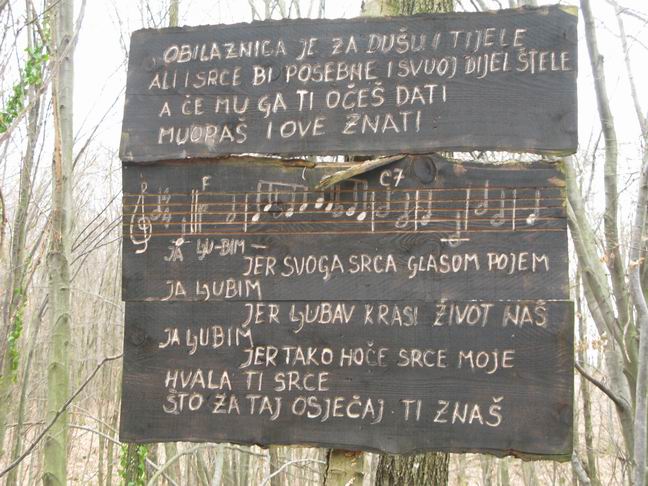 OBILAZNICA JE ZA DUŠU I TIJELE
ALI I SRCE BI POSEBNE I SVUOJ DIJEL ŠTELE
A ČE MU GA TI OČEŠ DATI
MUORAŠ I OVE ZNATI
F C7
JA LJU-BIM —
JER SVOGA SRCA GLASOM POJEM
JA LJUBIM
JER LJUBAV KRASI ŽIVOT NAŠ
JA LJUBIM
JER TAKO HOČE SRCE MOJE
HVALA TI SRCE
ŠTO ZA TAJ OSJEČAJ TI ZNAŠ